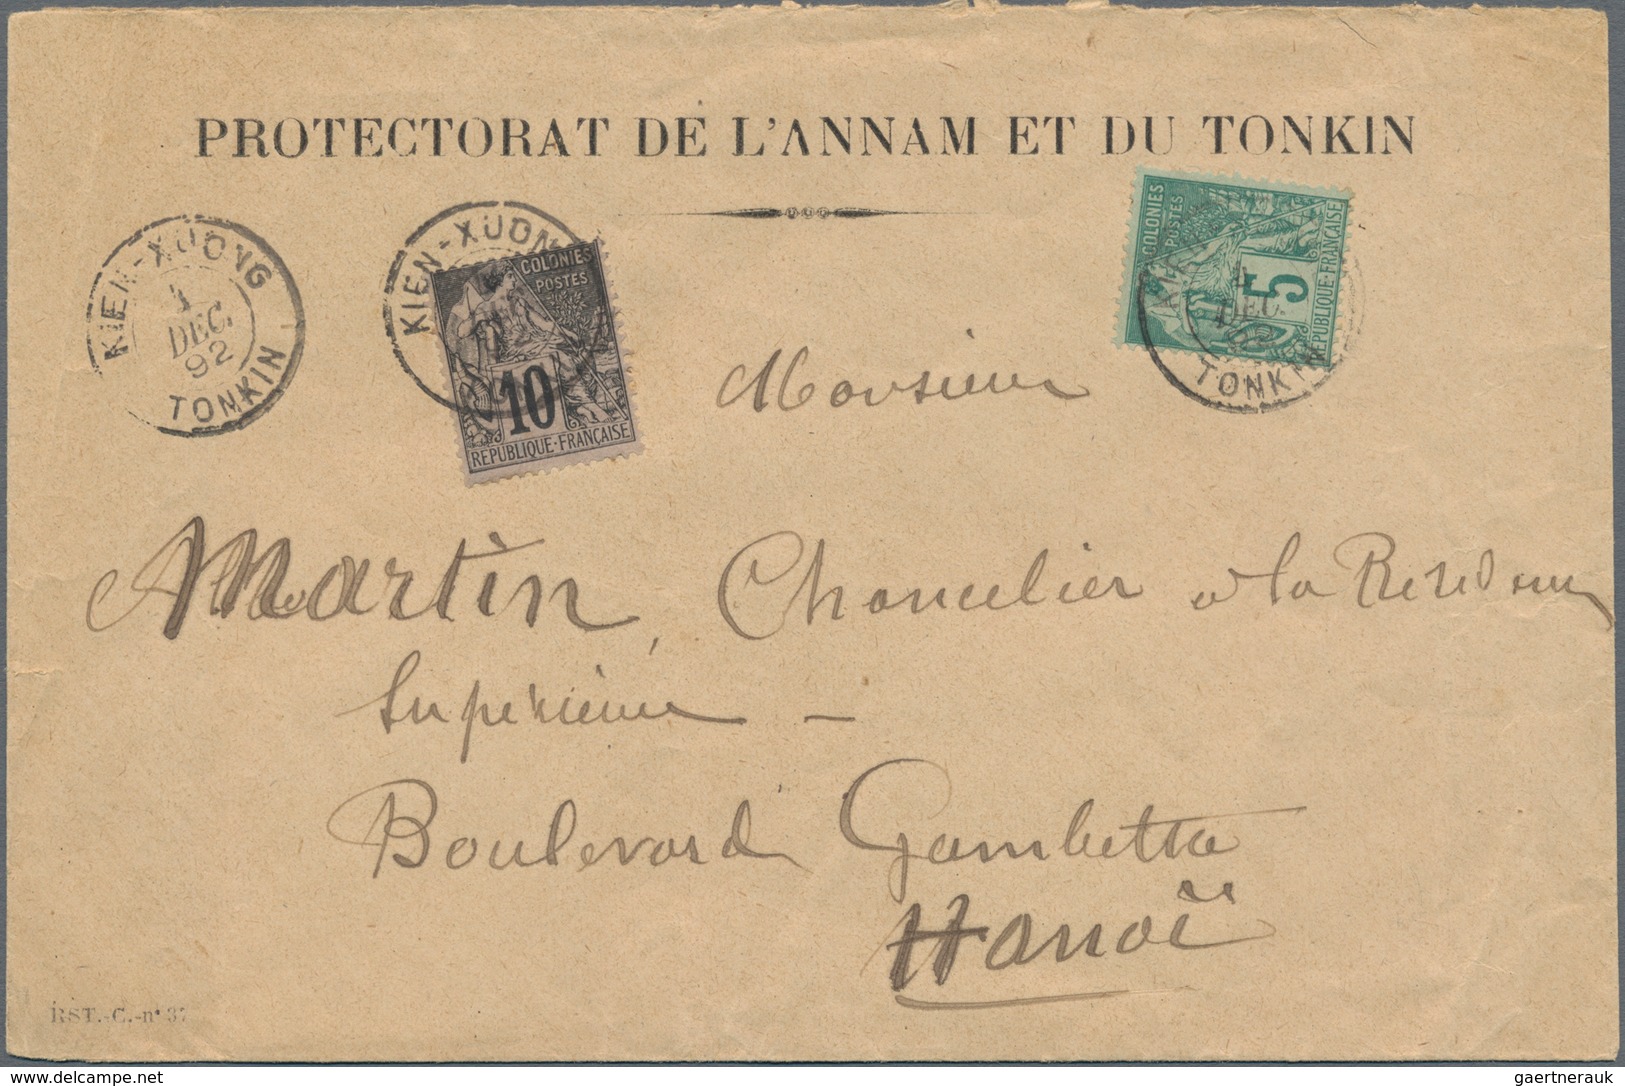 PROTECTORAT DE L'ANNAM ET DU TONKIN
KIEN-XUONG
4
DEC.
92
TONKIN
KIEN-XUONG
COLONIES
POSTES
10
REPUBLIQUE-FRANÇAISE
COLONIES
POSTES
5
REPUBLIQUE-FRANÇAISE
4
DEC.
92
TONKIN
Monsieur
Martin, Chancelier à la Résidence
Supérieure -
Boulevard Gambetta
Hanoï
RST.-C.-nº 37
delcampe.net
gaertnerauk